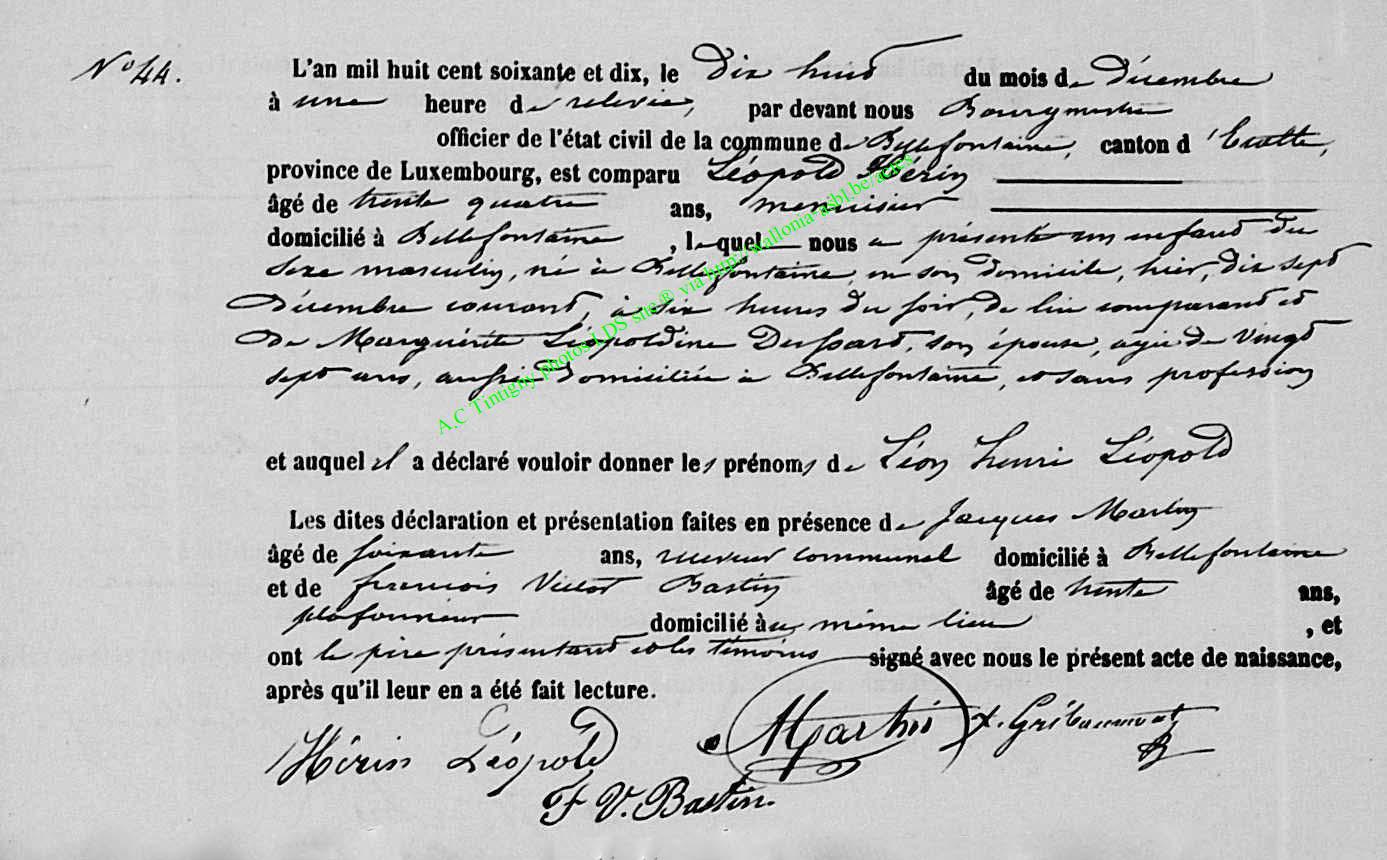 N° 44.
L'an mil huit cent soixante et dix, le Dix huit du mois de Décembre
à une heure de relevée, par devant nous Bourgmestre
officier de l'état civil de la commune de Bellefontaine, canton d'Etalle,
province de Luxembourg, est comparu Léopold Hérin
âgé de trente quatre ans, menuisier
domicilié à Bellefontaine, lequel nous a présenté un enfant du
sexe masculin, né à Bellefontaine, en son domicile, hier, dix sept
Décembre courant, à six heures du soir, de lui comparant et
de Marguerite Léopoldine Dessart, son épouse, agée de vingt
sept ans, aussi domiciliée à Bellefontaine, et sans profession
et auquel il a déclaré vouloir donner les prénoms de Léon Henri Léopold
Les dites déclaration et présentation faites en présence de Jacques Martin
âgé de soixante ans, receveur communal domicilié à Bellefontaine
et de François Victor Bastin âgé de trente ans,
plafonneur domicilié au même lieu, et
ont le père présentant et les témoins signé avec nous le présent acte de naissance,
après qu'il leur en a été fait lecture.
Hérin Léopold Martin X. Gribaumont
F V. Bastin.
A.C Tintigny photos LDS site ® via http://wallonia-asbl.be/actes